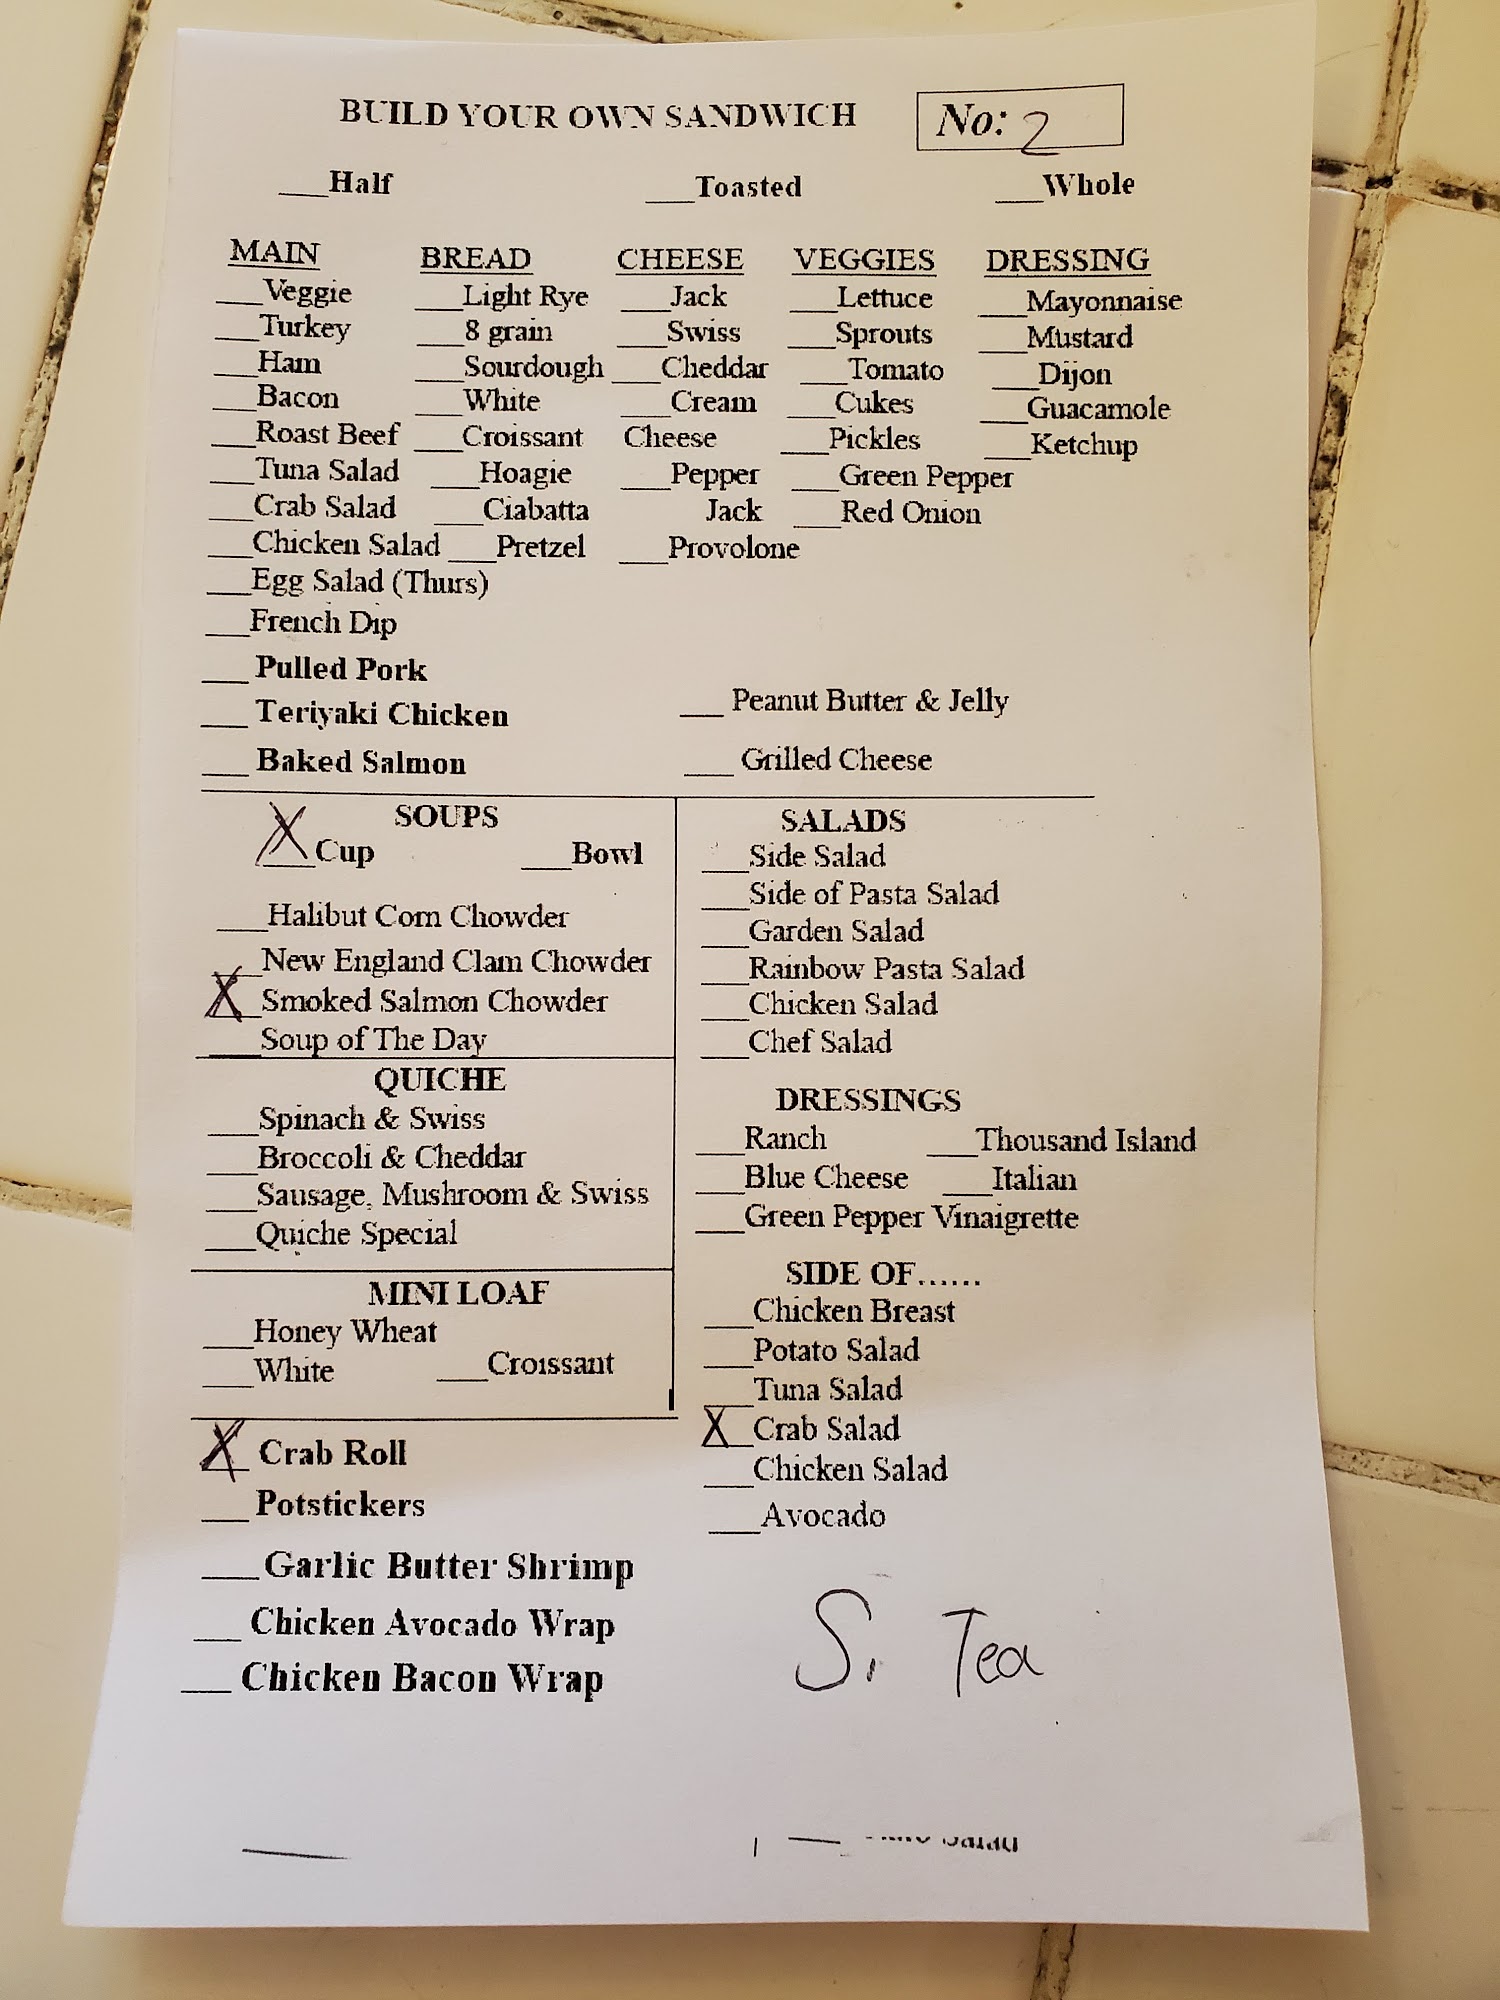 BUILD YOUR OWN SANDWICH No: 2
___Half ___Toasted ___Whole
MAIN BREAD CHEESE VEGGIES DRESSING
___Veggie ___Light Rye ___Jack ___Lettuce ___Mayonnaise
___Turkey ___8 grain ___Swiss ___Sprouts ___Mustard
___Ham ___Sourdough ___Cheddar ___Tomato ___Dijon
___Bacon ___White ___Cream ___Cukes ___Guacamole
___Roast Beef ___Croissant Cheese ___Pickles ___Ketchup
___Tuna Salad ___Hoagie ___Pepper ___Green Pepper
___Crab Salad ___Ciabatta Jack ___Red Onion
___Chicken Salad ___Pretzel ___Provolone
___Egg Salad (Thurs)
___French Dip
___ Pulled Pork
___ Teriyaki Chicken ___ Peanut Butter & Jelly
___ Baked Salmon ___ Grilled Cheese
SOUPS
X Cup ___Bowl
___Halibut Corn Chowder
___New England Clam Chowder
X Smoked Salmon Chowder
___Soup of The Day
QUICHE
___Spinach & Swiss
___Broccoli & Cheddar
___Sausage, Mushroom & Swiss
___Quiche Special
MINI LOAF
___Honey Wheat
___White ___Croissant
X Crab Roll
___ Potstickers
___ Garlic Butter Shrimp
___ Chicken Avocado Wrap
___ Chicken Bacon Wrap
SALADS
___Side Salad
___Side of Pasta Salad
___Garden Salad
___Rainbow Pasta Salad
___Chicken Salad
___Chef Salad
DRESSINGS
___Ranch ___Thousand Island
___Blue Cheese ___Italian
___Green Pepper Vinaigrette
SIDE OF......
___Chicken Breast
___Potato Salad
___Tuna Salad
X Crab Salad
___Chicken Salad
___Avocado
S. Tea
Salad